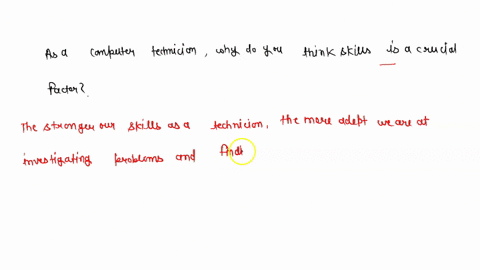 As a computer technician, why do you think skills is a crucial
factor?
The stronger our skills as a technician, the more adept we are at
investigating problems and find